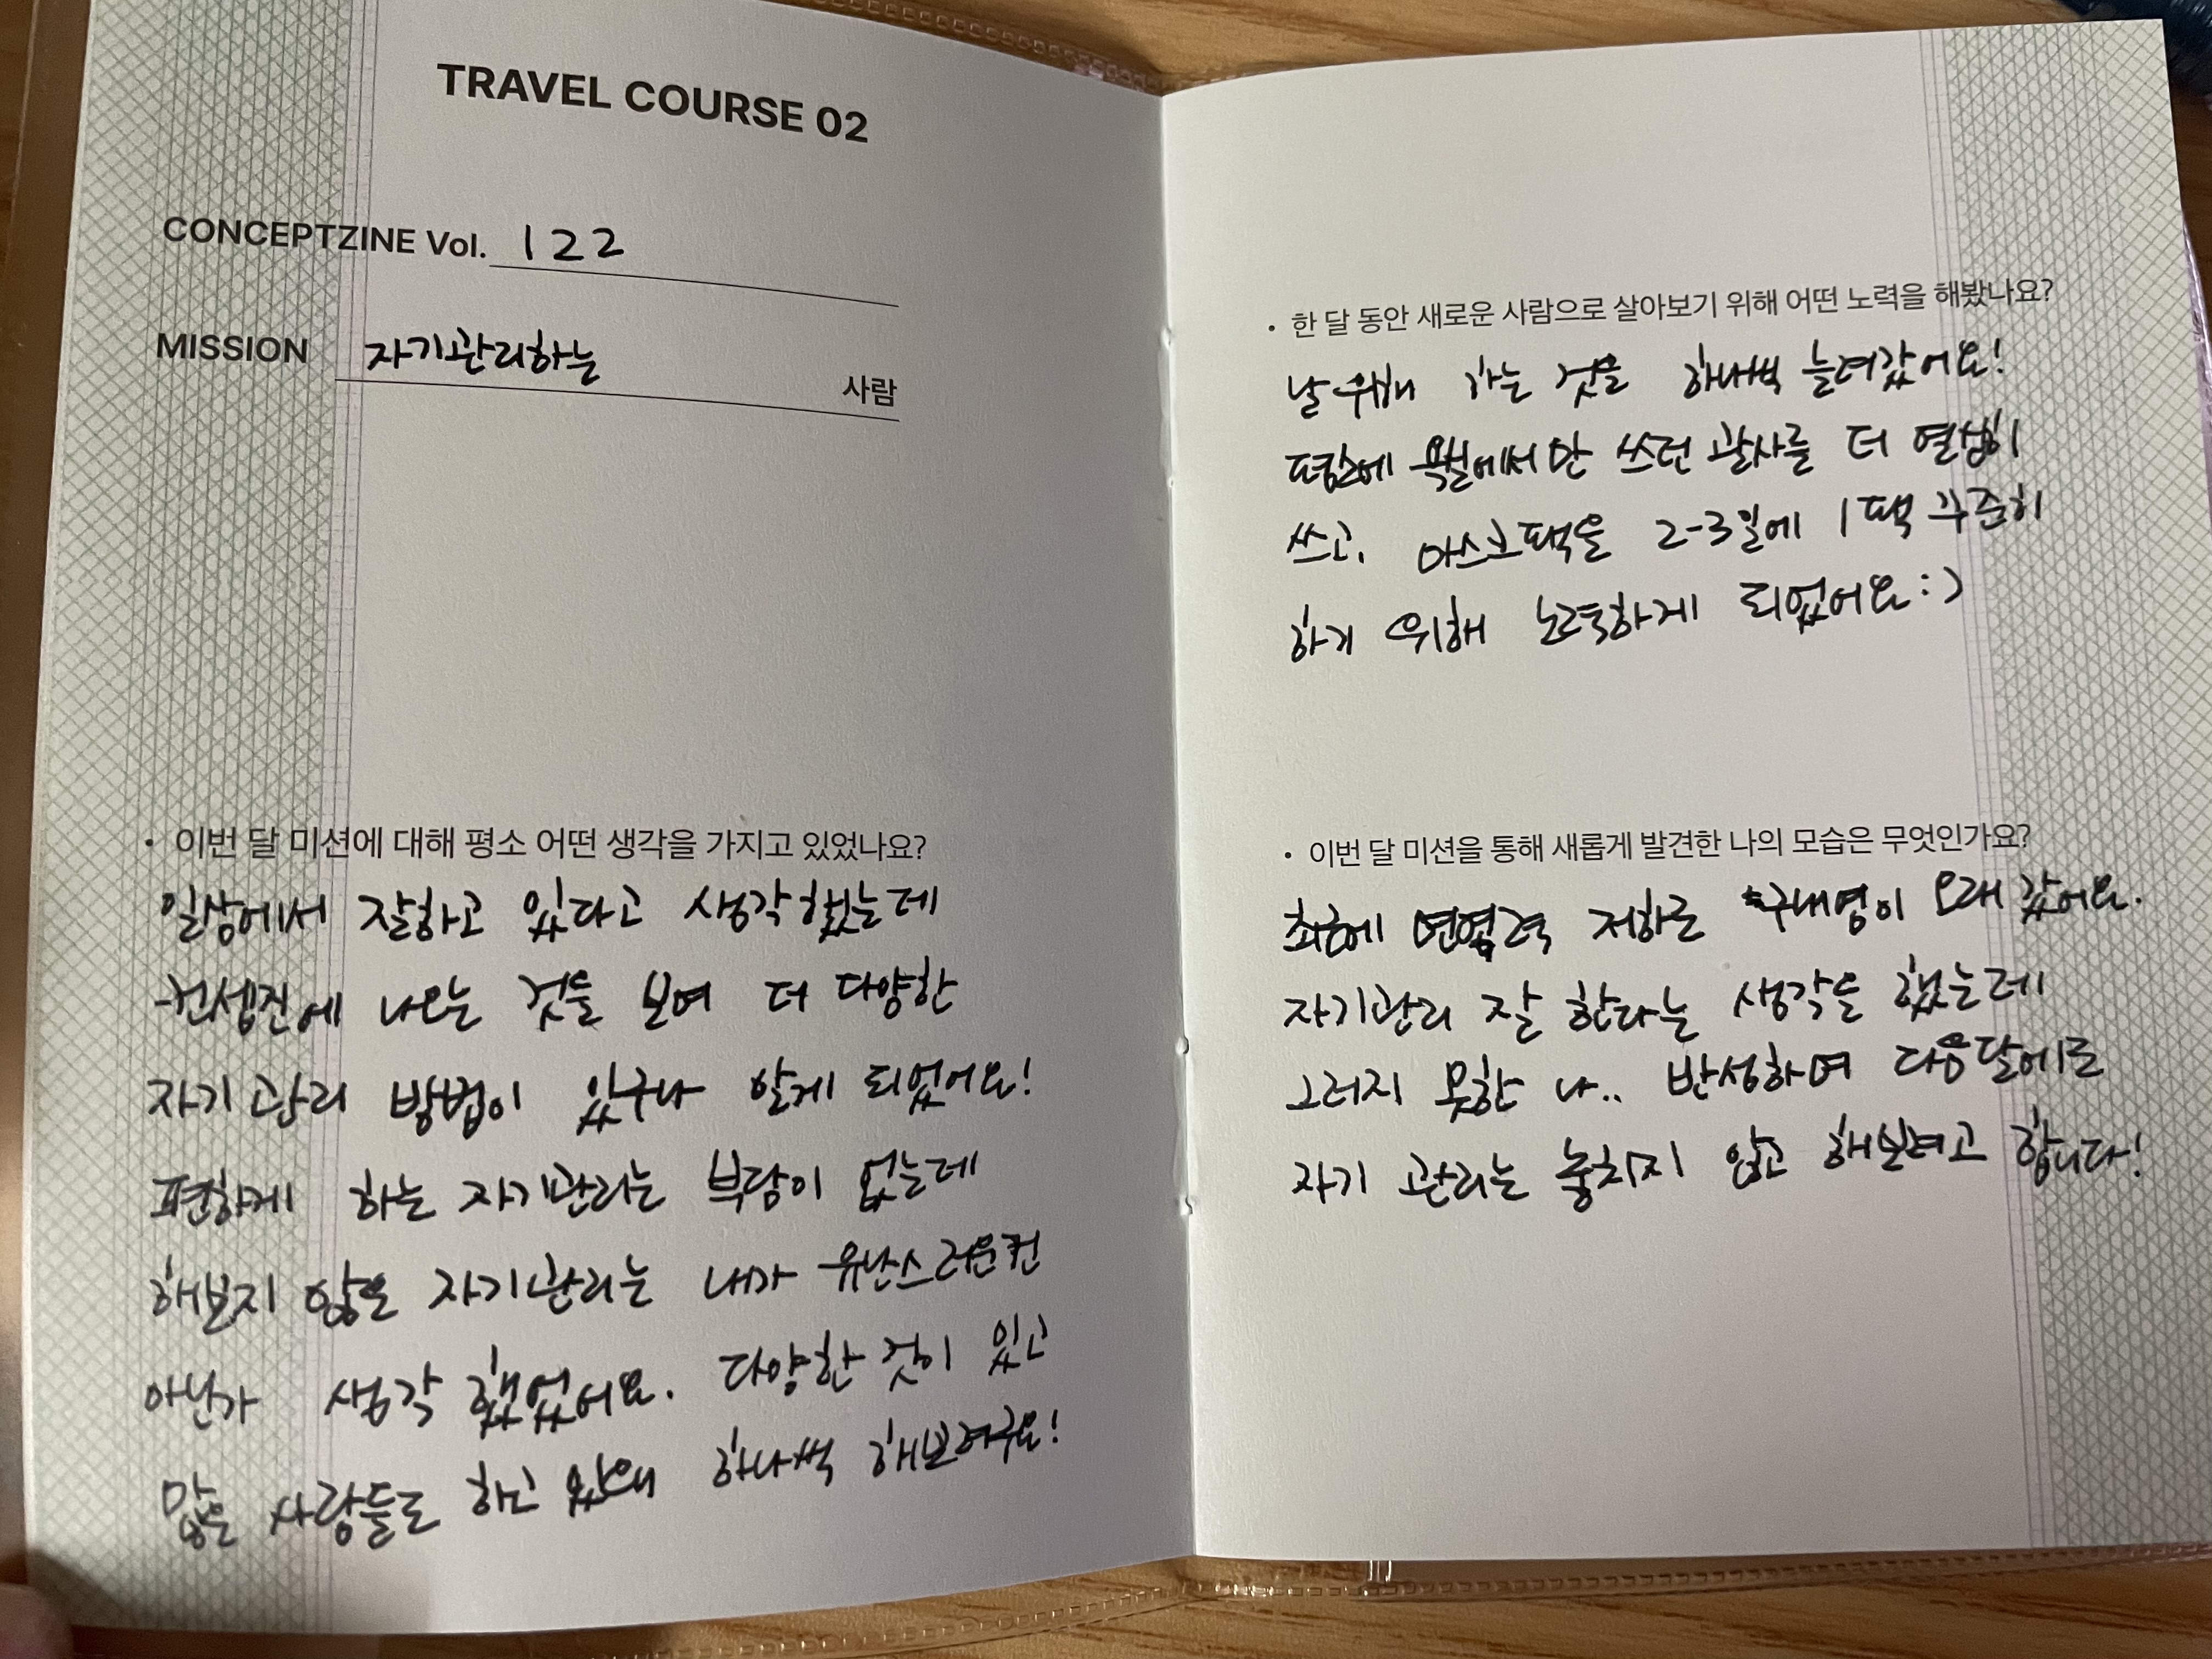 TRAVEL COURSE 02
CONCEPTZINE Vol. 122
MISSION 자기관리하는 사람
• 이번 달 미션에 대해 평소 어떤 생각을 가지고 있었나요?
일상에서 잘하고 있다고 생각했는데
컨셉진에 나오는 것들 보며 더 다양한
자기관리 방법이 있구나 알게 되었어요!
편하게 하는 자기관리는 부담이 없는데
해보지 않은 자기관리는 내가 유난스러운건
아닌가 생각했었어요. 다양한 것이 있고
많은 사람들도 하고 있으며 하나씩 해보려구요!
• 한 달 동안 새로운 사람으로 살아보기 위해 어떤 노력을 해봤나요?
날 위해 하는 것을 하나씩 늘려갔어요!
평소에 욕실에서만 쓰던 괄사를 더 열심히
쓰고, 마스크팩을 2-3일에 1팩 꾸준히
하기 위해 노력하게 되었어요:)
• 이번 달 미션을 통해 새롭게 발견한 나의 모습은 무엇인가요?
최근에 면역력 저하로 구내염이 오래 갔어요.
자기관리 잘 한다는 생각을 했는데
그러지 못한 나.. 반성하며 다음달에도
자기 관리는 놓치지 않고 해보려고 합니다!